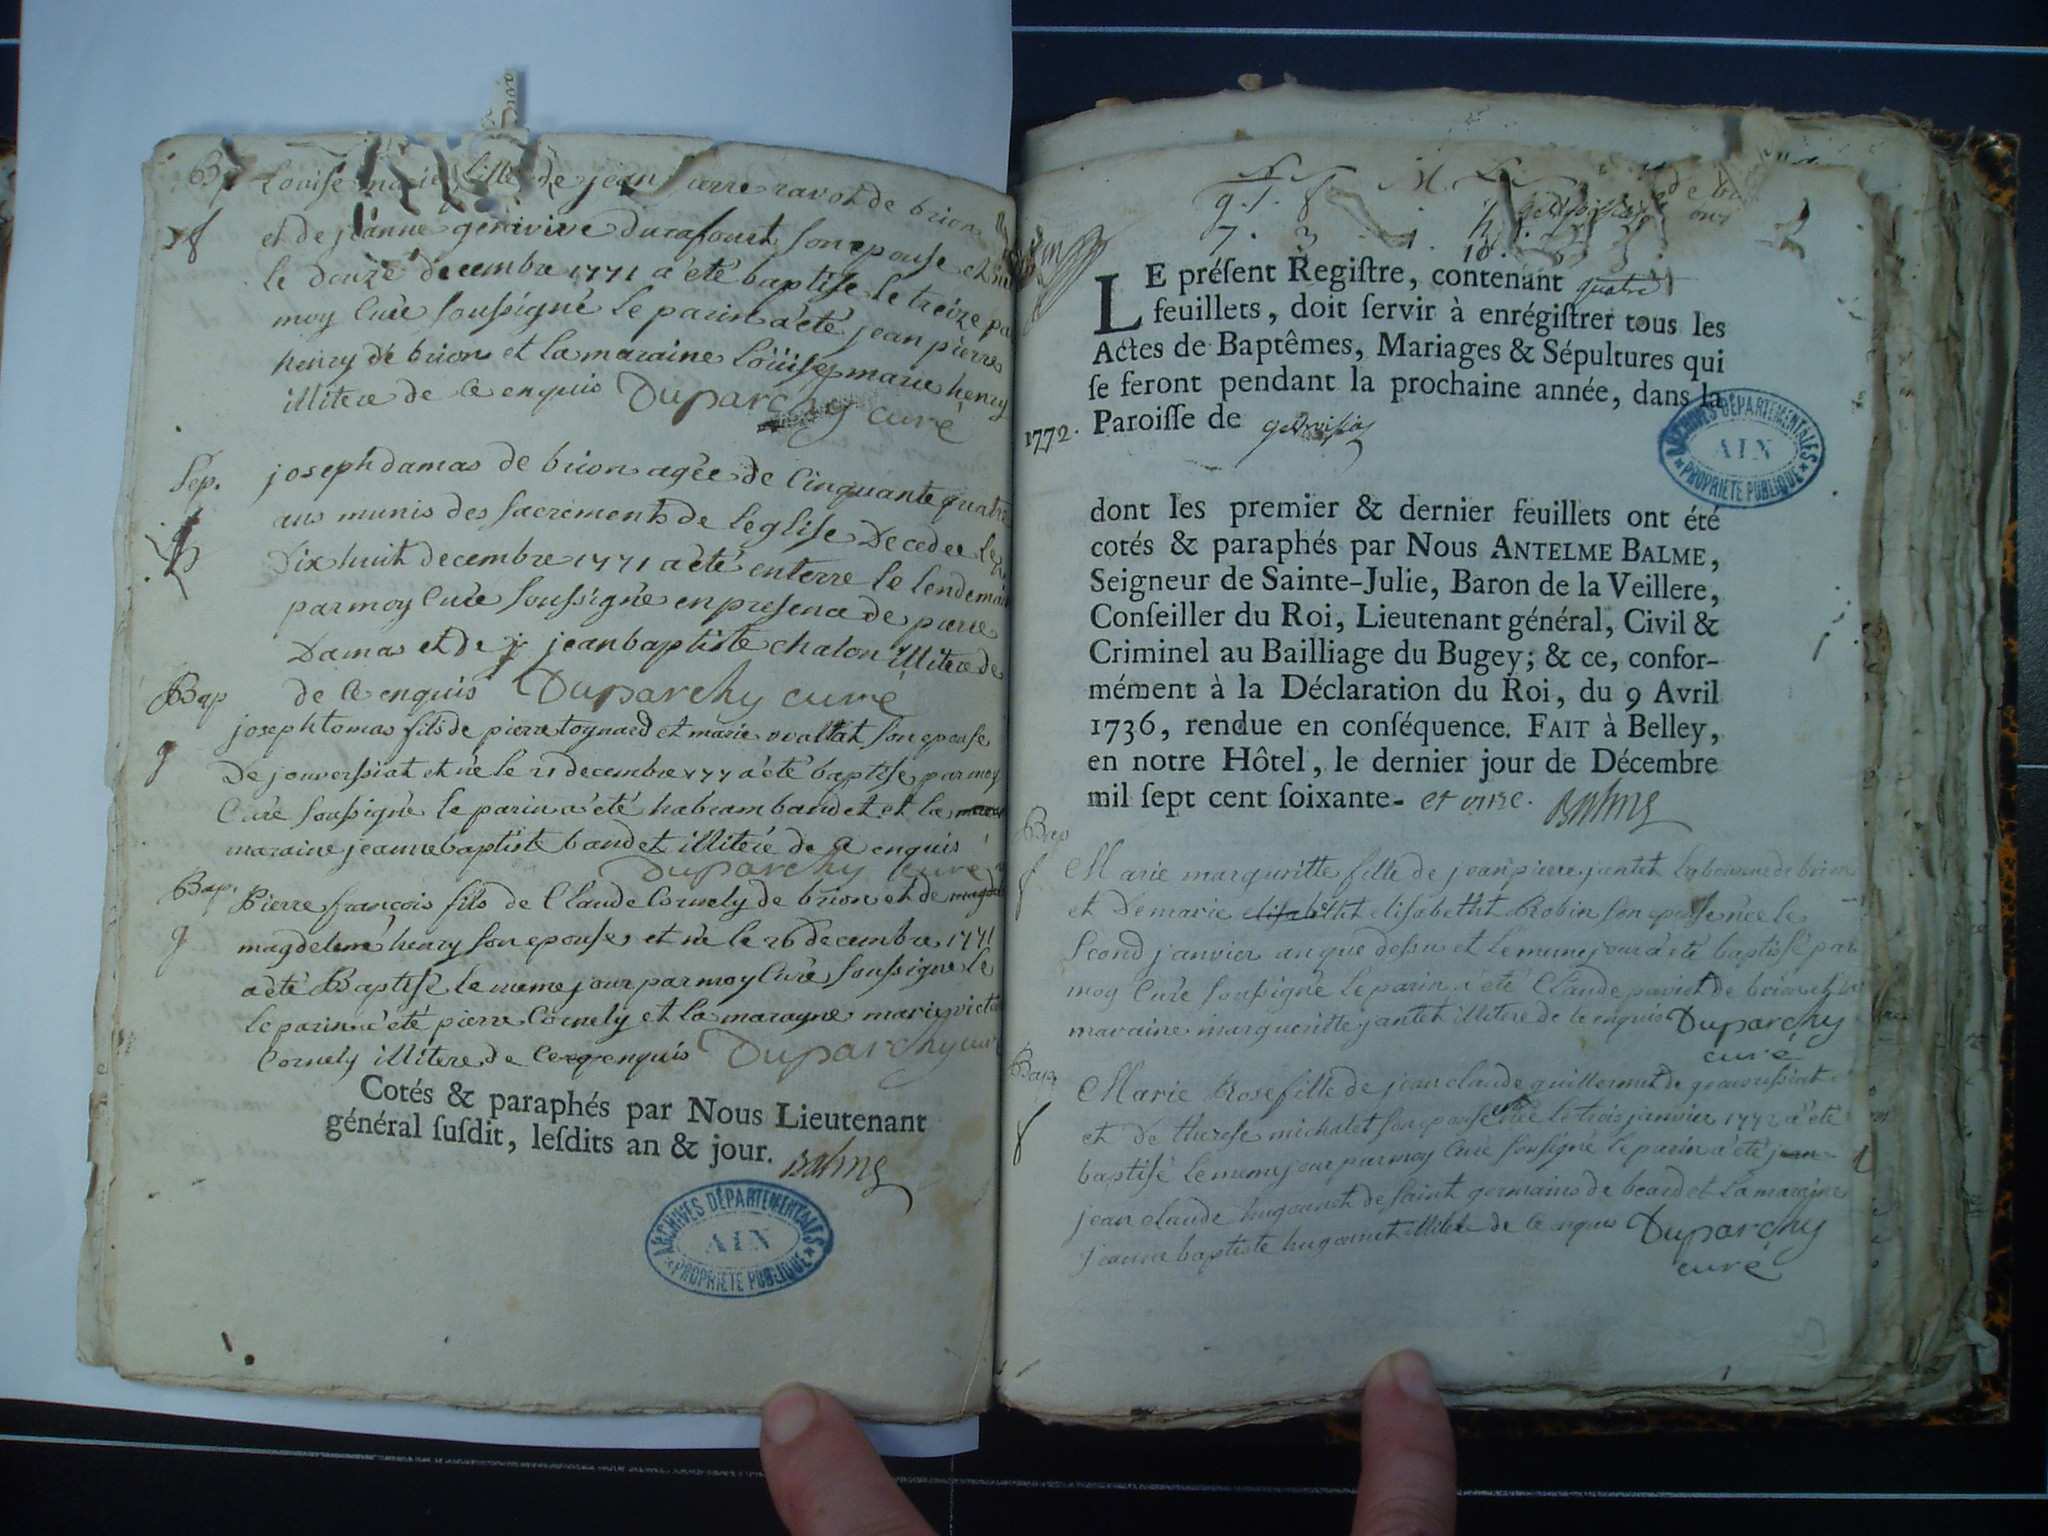 B
Louise marie fille de jean pierre ravot de brion
f
et de jeanne genevive ducafouet son epouse et née
le douze decembre 1771 a été baptise le treize par
moy Curé soussigné le parin a été jean pierre
henry de brion et la maraine Loüise marie henry
illitere de ce enquis Duparchy curé
Sep. joseph damas de brion agée de Cinquante quatre
ans munis des sacrements de leglise Decedee le
Dix huit decembre 1771 a été enterre le lendemain
par moy Curé soussigne en presence de pierre
Damas et de jean baptiste chalon illitere de
de ce enquis Duparchy curé
Bap
joseph tomas fils de pierre toynard et marie son epouse
g
De jouverssiat et né le 21 decembre 177 a été baptise par moy
Curé soussigne le parin a été baudet et la
maraine jeanne baptiste baudet illiteré de ce enquis
Duparchy curé
Bap. Pierre françois fils de Claude Cornely de brion et de
g
magdelene henry son epouse et né le 26 decembre 1771
a été Baptisé le meme jour par moy Curé soussigne le
le parin a été pierre Cornely et la marayne marie
Cornely illitere de ce enquis Duparchy curé
Cotés & paraphés par Nous Lieutenant
général susdit, lesdits an & jour. Balme
ARCHIVES DÉPARTEMENTALES
AIN
PROPRIÉTÉ PUBLIQUE
N M
g. 1. 8
7. 3 1. 10.
LE présent Registre, contenant quatre
feuillets, doit servir à enrégistrer tous les
Actes de Baptêmes, Mariages & Sépultures qui
se feront pendant la prochaine année, dans la
1772. Paroisse de geovissia
ARCHIVES DÉPARTEMENTALES
AIN
PROPRIÉTÉ PUBLIQUE
dont les premier & dernier feuillets ont été
cotés & paraphés par Nous ANTELME BALME,
Seigneur de Sainte-Julie, Baron de la Veillere,
Conseiller du Roi, Lieutenant général, Civil &
Criminel au Bailliage du Bugey; & ce, confor-
mément à la Déclaration du Roi, du 9 Avril
1736, rendue en conséquence. FAIT à Belley,
en notre Hôtel, le dernier jour de Décembre
mil sept cent soixante- et onze. Balme
Bap
f
Marie margueritte fille de jean pierre jantet laboureur de brion
et De marie elisabetht Robin son epouse née le
second janvier an que dessu et le meme jour a été baptissé par
moy Curé soussigné le parin a été Claude paviot de brion et la
maraine margueritte jantet illitere de ce enquis Duparchy
curé
Bap.
f
Marie Rose fille de jean claude guillermet de geovressiat
et De therese michalet son epouse née le trois janvier 1772 a été
baptisé le meme jour par moy Curé soussigné le parin a été
jean claude hugonnet de saint germains de beard et la maraine
jeanne baptiste hugonnet illitere de ce enquis Duparchy
curé